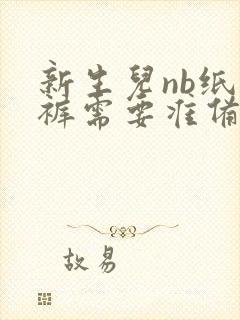 新生兒nb纸
裤需要准備
故易